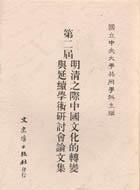 國立中央大學共同學科主編
第二屆
明清之際中國文化的轉變
與延續學術研討會論文集
文史哲出版社印行